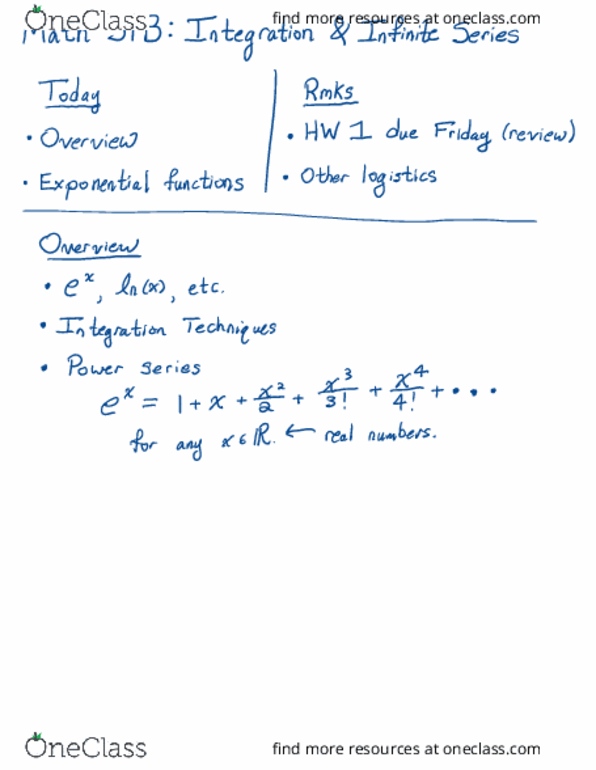 OneClass find more resources at oneclass.com
Math : Integration & Infinite Series
Today
• Overview
• Exponential functions
Rmks
• HW 1 due Friday (review)
• Other logistics
Overview
• e^x, ln(x), etc.
• Integration Techniques
• Power series
e^x = 1 + x + x²/2 + x³/3! + x⁴/4! + • • •
for any x ∈ ℝ. ← real numbers.
OneClass find more resources at oneclass.com